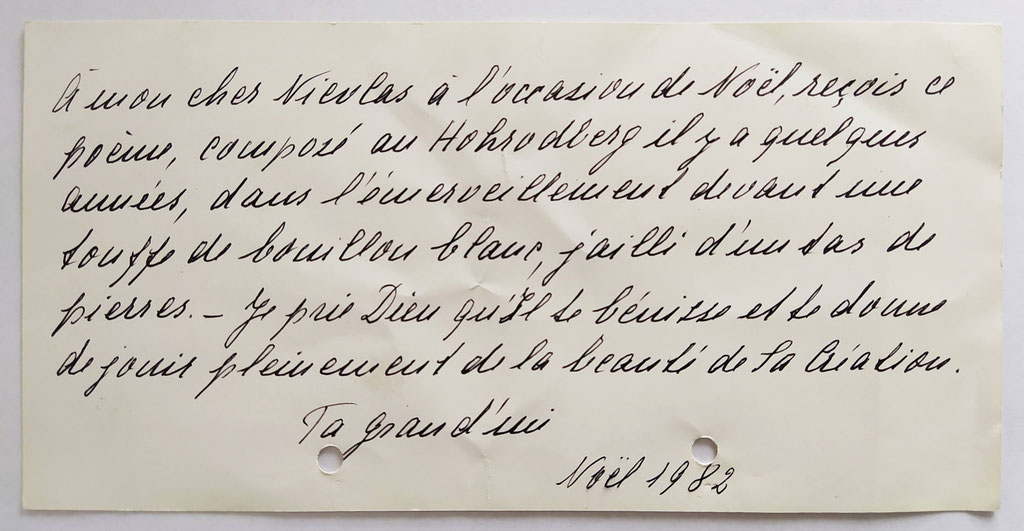 À mon cher Nicolas à l'occasion de Noël, reçois ce
poème, composé au Hohrodberg il y a quelques
années, dans l'émerveillement devant une
touffe de bouillon blanc, jailli d'un tas de
pierres. – Je prie Dieu qu'Il te bénisse et te donne
de jouir pleinement de la beauté de Sa Création.
Ta grand'mi
Noël 1982